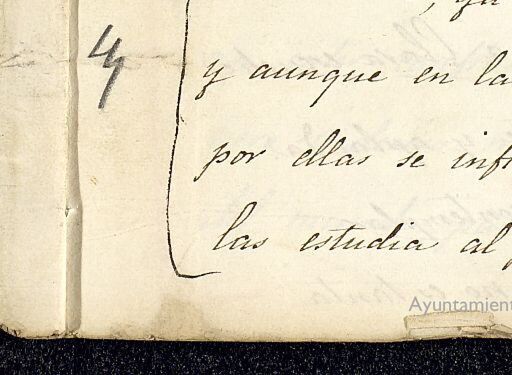 y aunque en la
por ellas se inf
las estudia al
Ayuntamient